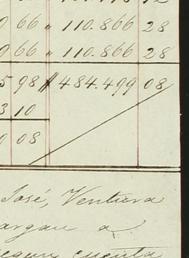 66 " 110.866 28
66 " 110.866 28
98 $ 484.499 08
3 10
0 08
José, Ventura
cargan a
segun cuenta